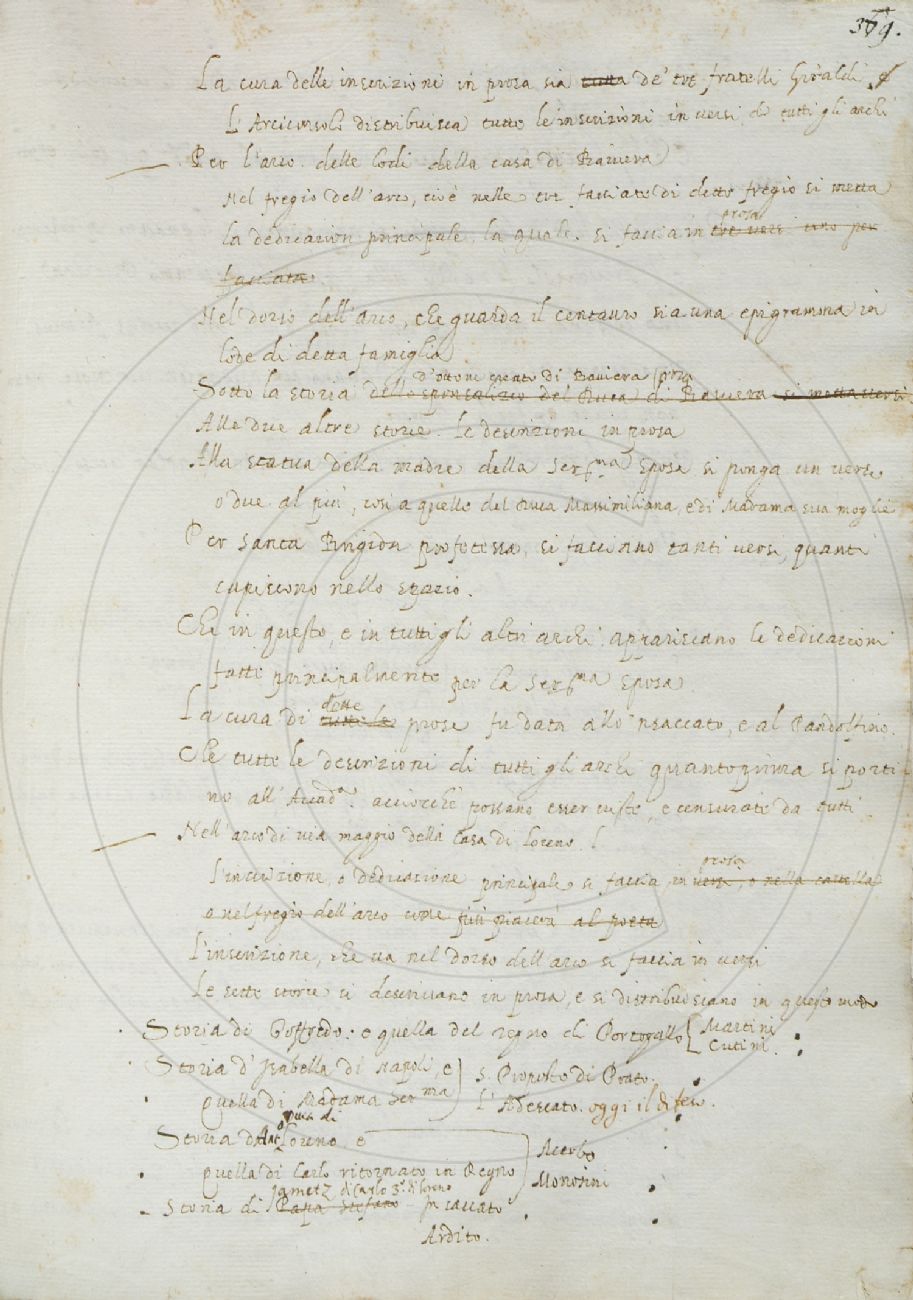 369.
La cura delle inscrizioni in prosa sia tutta de' tre fratelli Giraldi
L'Arciconsolo distribuisca tutte le inscrizioni in versi di tutti gli archi
Per l'arco delle lodi della casa di Baviera
Nel fregio dell'arco, cioè nelle tre facciate di detto fregio si metta
prosa
la dedicazion principale, la quale si faccia in tre versi uno per
facciata.
Nel dorso dell'arco, che guarda il centauro sia una epigramma in
lode di detta famiglia
d'ottone creato di Baviera prosa
Sotto la storia dello sponsalizio del Duca di Baviera si metta versi
Alle due altre storie. Le descrizioni in prosa
Alla statua della madre della Ser.ma Sposa si ponga un verso
o due al più, così a quello del Duca Massimiliano, e di Madama sua moglie
Per Santa Brigida profetessa, si facciano tanti versi, quanti
capiscono nello spazio.
Che in questo, e in tutti gli altri archi appariscano le dedicazioni
fatte principalmente per la Ser.ma Sposa
dette
La cura di tutte le prose fu data allo 'nsaccato, e al Pandolfino.
Che tutte le descrizioni di tutti gli archi quantoprima si porti
no all'Accad.a acciocché possano esser viste, e censurate da tutti
Nell'arco di via maggio della Casa di Loreno.
prosa
L'inscrizione, o dedicazione principale si faccia in versi, o nella cartella
o nel fregio dell'arco come più piacerà al poeta
L'inscrizione, che va nel dorso dell'arco si faccia in versi
Le sette storie si descrivano in prosa, e si distribuiscano in questo modo
Storia di Goffredo: e quella del regno di Portogallo Martini
Cutini.
Storia d'Isabella di Napoli, e S. Proposto di Prato.
quella di Madama Ser.ma L'Adescato. oggi il difeso.
Storia di Loreno e Acerbo
quella di Carlo ritornato in Regno Monosini
Jametz di Carlo 3.o di loreno
Storia di Papa Stefano Insaccato
Ardito.